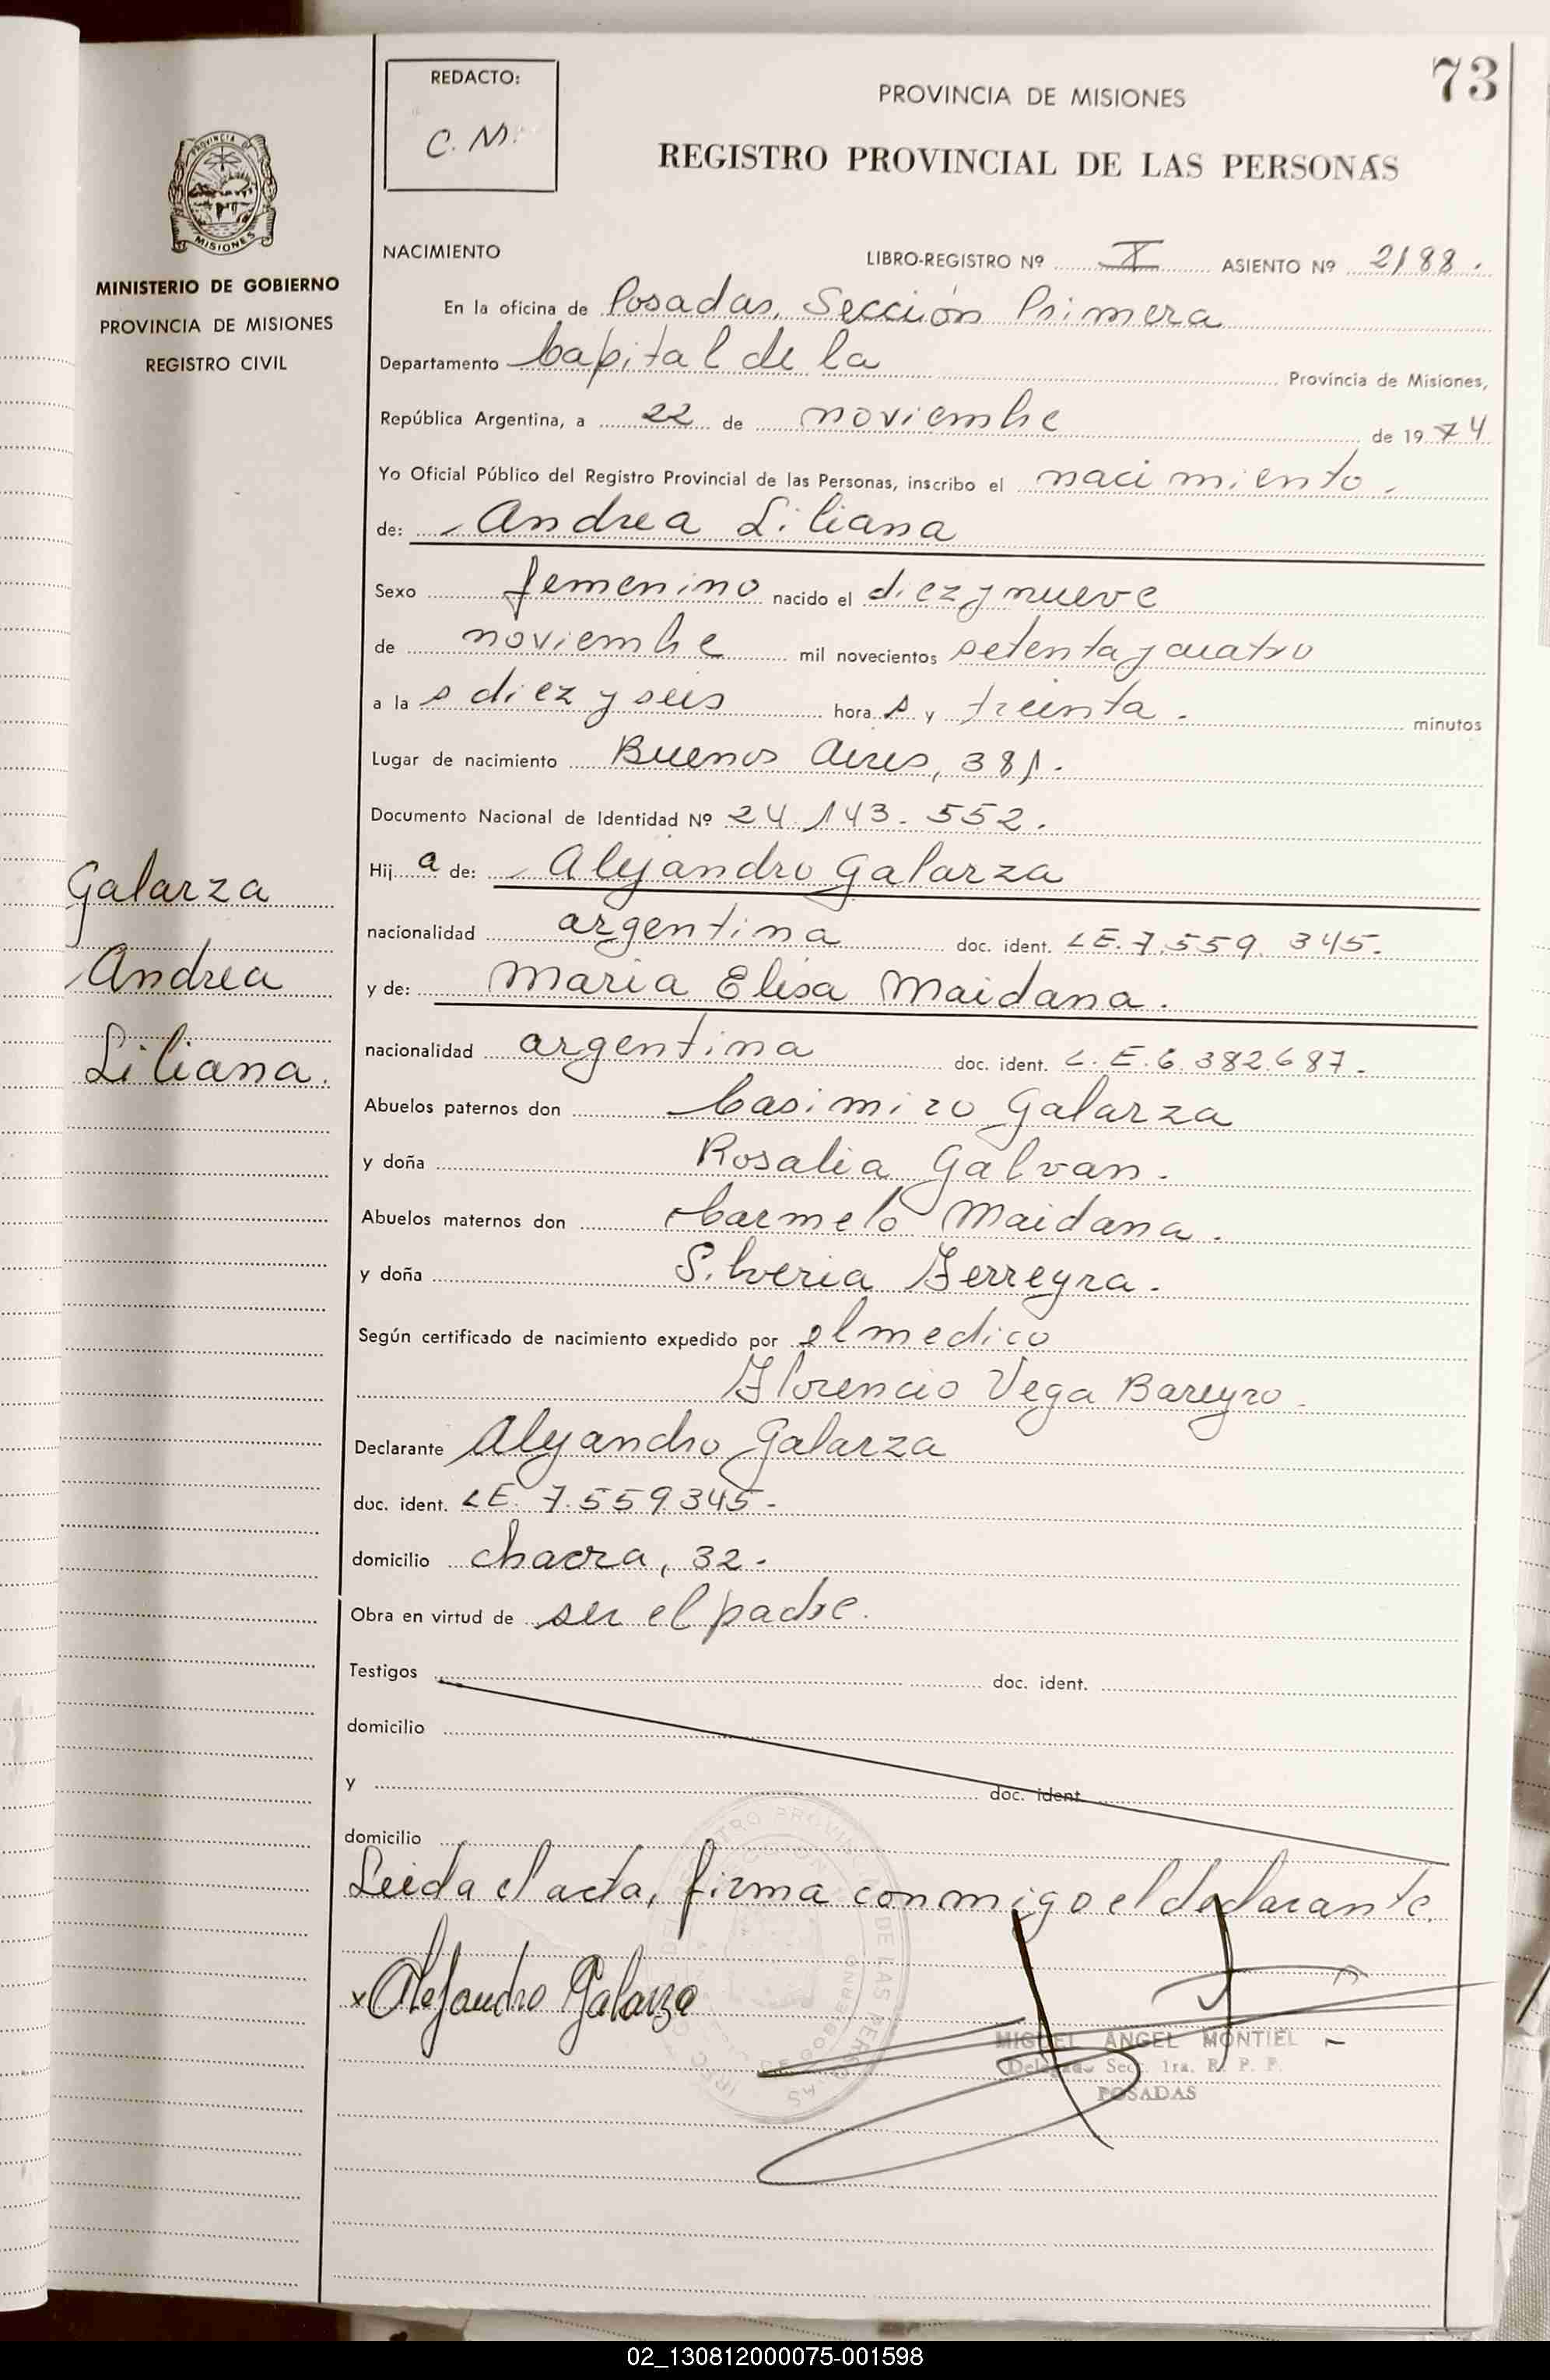 73
REDACTO:
C. M.
PROVINCIA DE MISIONES
REGISTRO PROVINCIAL DE LAS PERSONAS
PROVINCIA DE
MISIONES
MINISTERIO DE GOBIERNO
PROVINCIA DE MISIONES
REGISTRO CIVIL
NACIMIENTO LIBRO-REGISTRO Nº X ASIENTO Nº 2188.
En la oficina de Posadas, Sección Primera
Departamento Capital de la Provincia de Misiones,
República Argentina, a 22 de noviembre de 1974
Yo Oficial Público del Registro Provincial de las Personas, inscribo el nacimiento.
de: Andrea Liliana
Sexo femenino nacido el diez y nueve
de noviembre mil novecientos setenta y cuatro
a la s diez y seis hora s y treinta. minutos
Lugar de nacimiento Buenos Aires, 381.
Documento Nacional de Identidad Nº 24.143.552.
Hij a de: Alejandro Galarza
nacionalidad argentina doc. ident. L.E. 7.559.345.
y de: Maria Elisa Maidana.
nacionalidad argentina doc. ident. L.E. 6.382.687.
Abuelos paternos don Casimiro Galarza
y doña Rosalia Galvan.
Abuelos maternos don Carmelo Maidana.
y doña Silveria Ferreyra.
Según certificado de nacimiento expedido por el medico
Florencio Vega Bareyro.
Declarante Alejandro Galarza
doc. ident. L.E. 7.559.345.
domicilio chacra, 32.
Obra en virtud de ser el padre.
Testigos doc. ident.
domicilio
y doc. ident.
domicilio
Leida el acta, firma conmigo el declarante.
x Alejandro Galarza
MIGUEL ANGEL MONTIEL
Delegado Secc. 1ra. R. P. P.
POSADAS
Galarza
Andrea
Liliana.
02_130812000075-001598